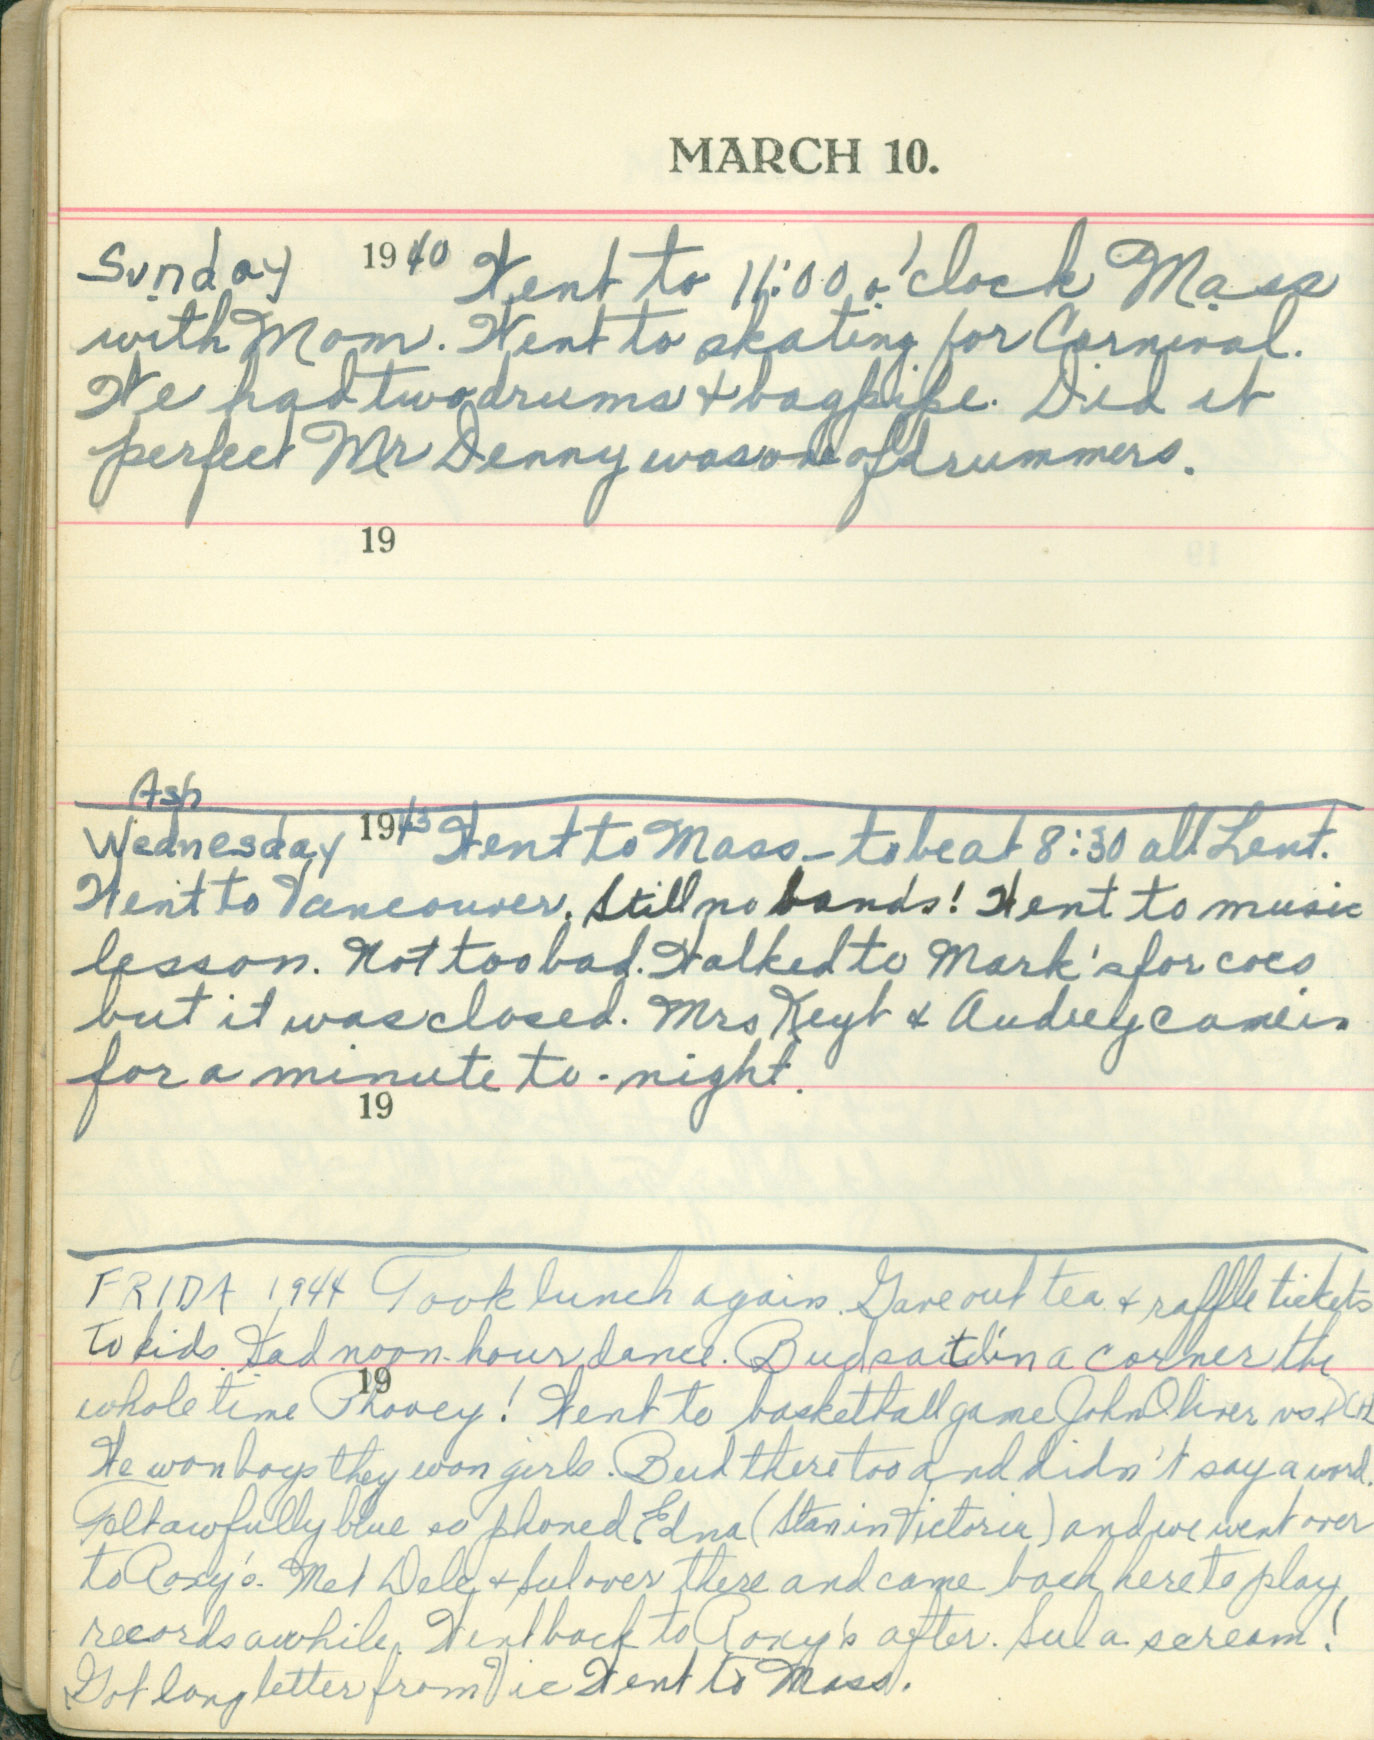 MARCH 10.
Sunday 1940 Went to 11:00 o'clock Mass
with Mom. Went to skating for Carnival.
We had two drums + bagpipe. Did it
perfect Mr Denny was one of drummers.
19
Ash
Wednesday 1943 Went to Mass - to be at 8:30 all Lent.
Went to Vancouver. Still no bands! Went to music
lesson. Not too bad. Walked to Mark's for coes
but it was closed. Mrs Keyt & Audrey came in
for a minute to-night.
19
FRIDA 1944 Took lunch again. Gave out tea + raffle tickets
to kids. Had noon-hour dance. Bud sat in a corner the
19
whole time Phooey! Went to basketball game John Oliver vs
We won boys they won girls. Bud there too and didn't say a word.
Felt awfully blue so phoned Edna (Stan in Victoria) and we went over
to Roxy's. Met Dele + Sul over there and came back here to play
records awhile. Went back to Roxy's after. Sul a scream!
Got long letter from Vic Went to Mass.